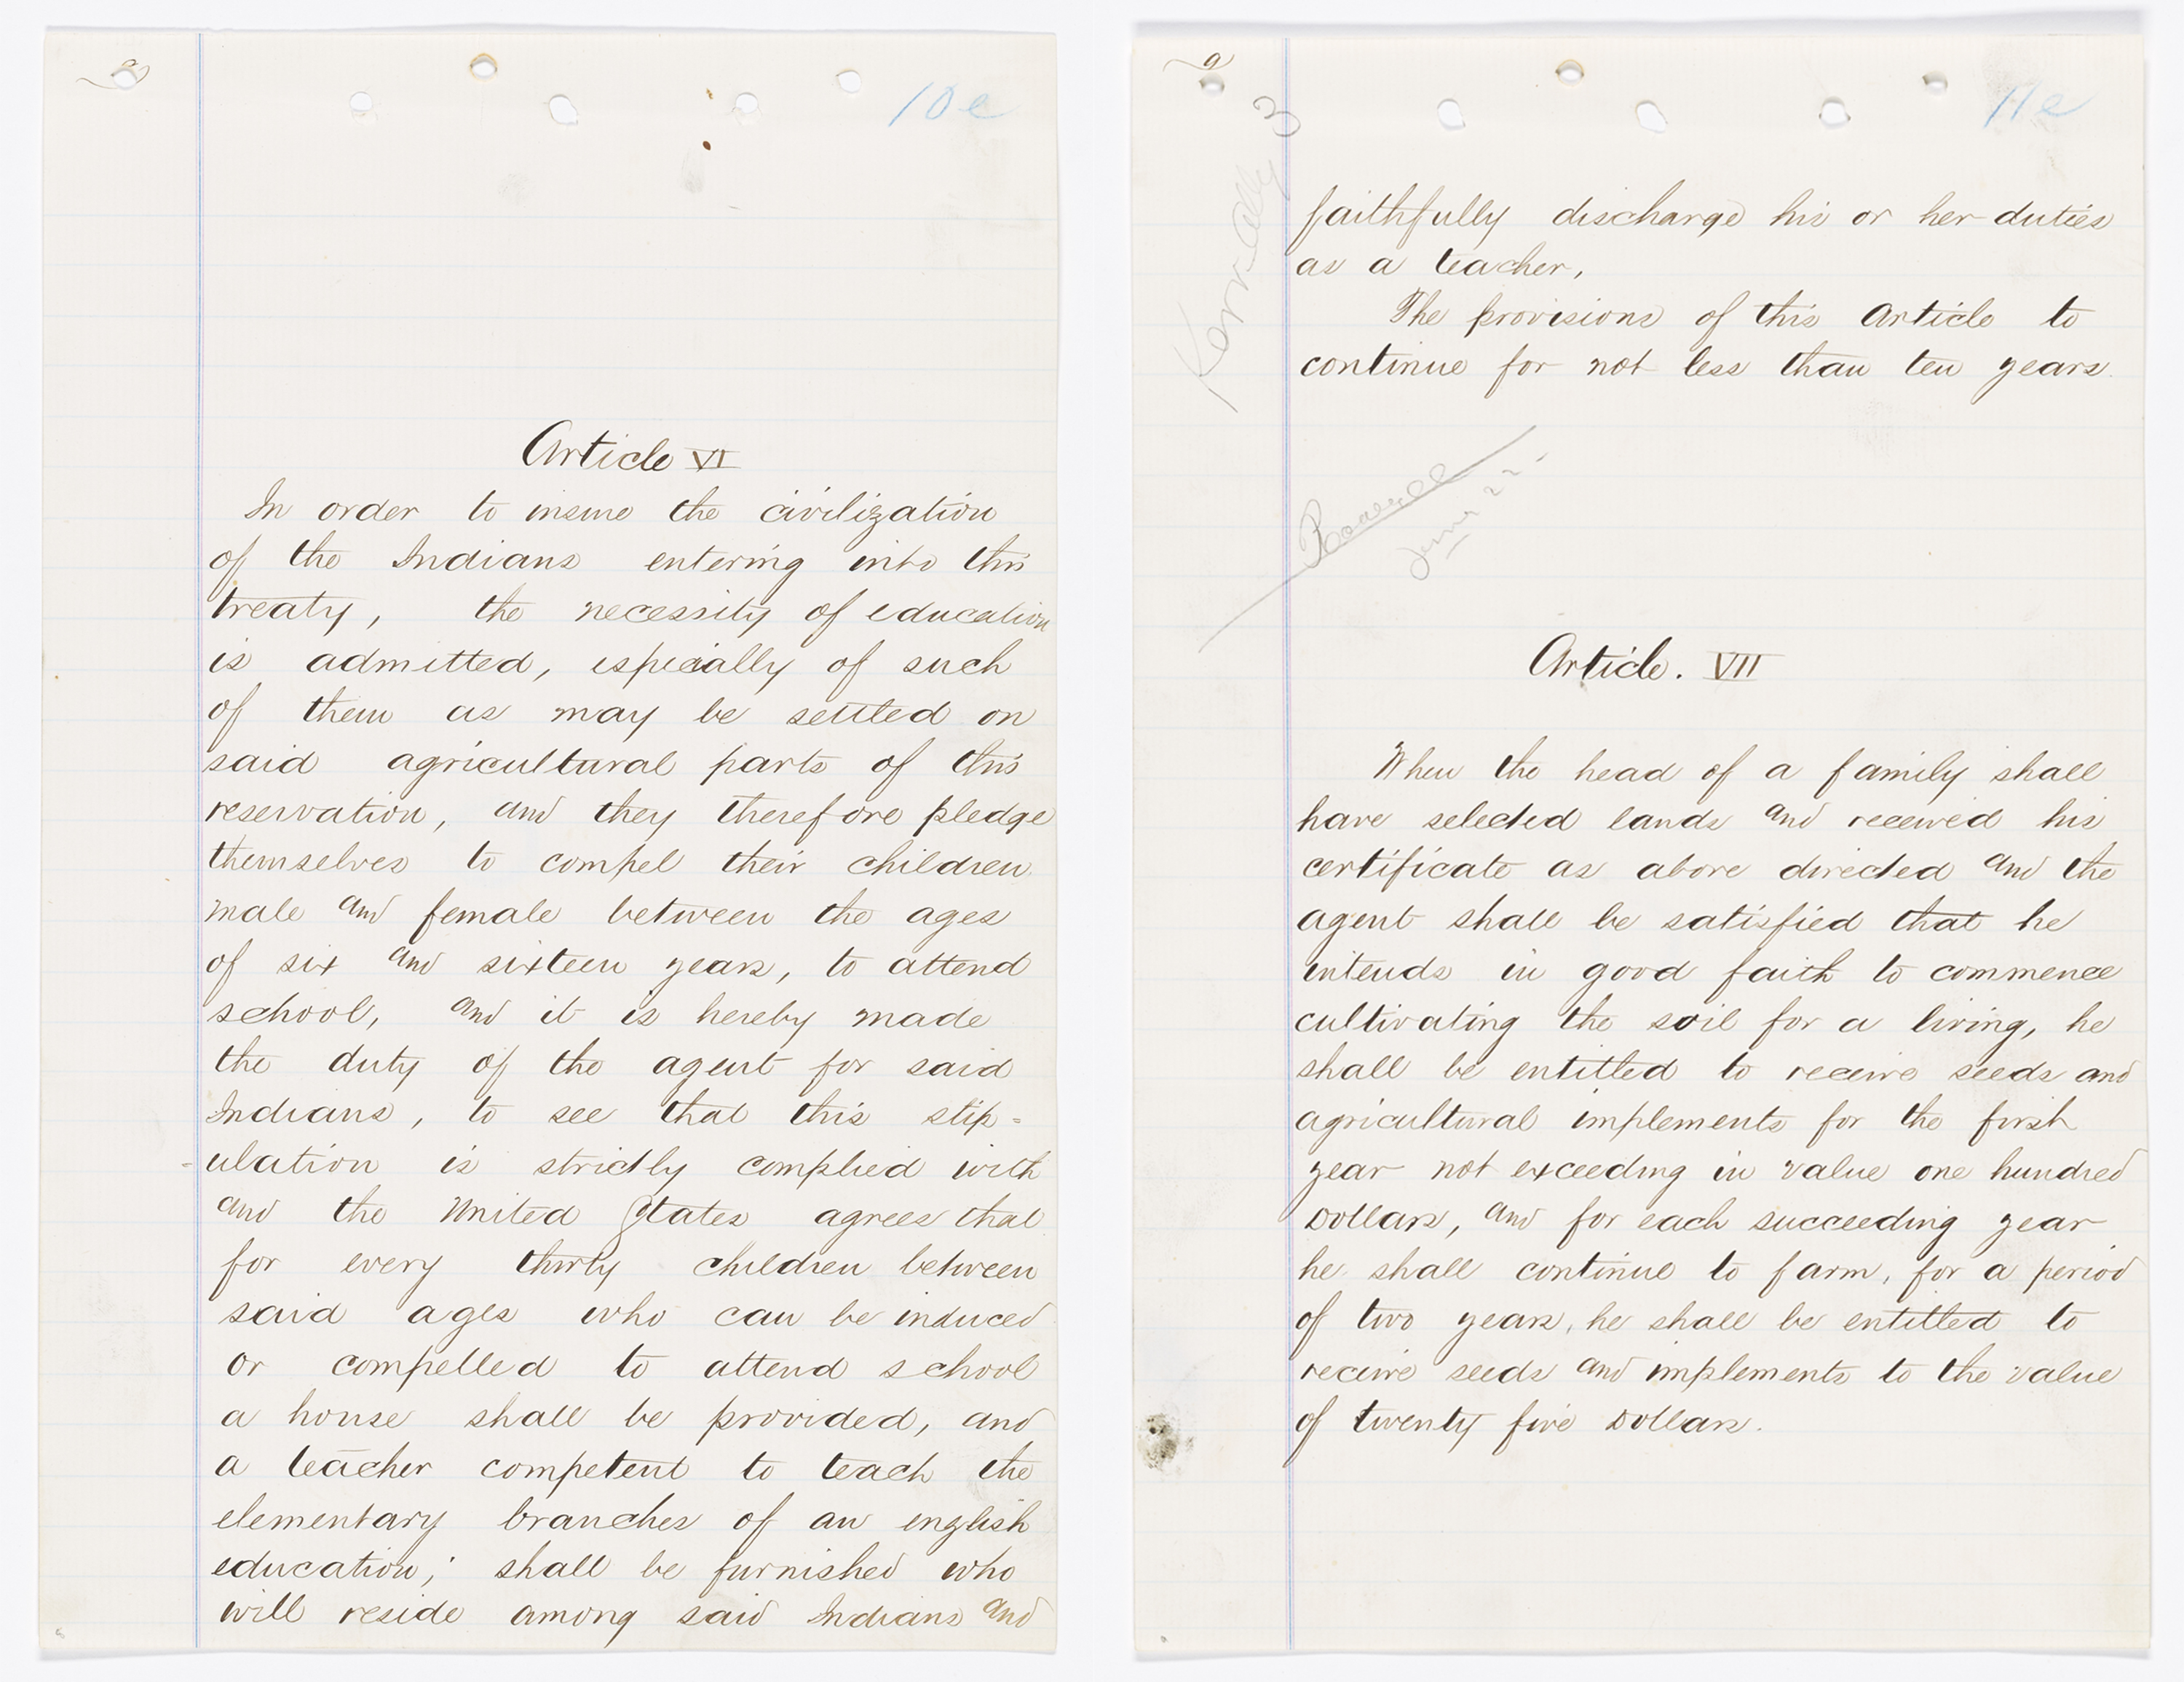 10e
Article VI
In order to insure the civilization
of the Indians entering into this
treaty, the necessity of education
is admitted, especially of such
of them as may be settled on
said agricultural parts of this
reservation, and they therefore pledge
themselves to compel their children
male and female between the ages
of six and sixteen years, to attend
school, and it is hereby made
the duty of the agent for said
Indians, to see that this stip-
-ulation is strictly complied with
and the United States agrees that
for every thirty children between
said ages who can be induced
or compelled to attend school
a house shall be provided, and
a teacher competent to teach the
elementary branches of an english
education; shall be furnished who
will reside among said Indians and
9
11e
3
faithfully discharge his or her duties
as a teacher,
The provisions of this Article to
continue for not less than ten years.
Article. VII
When the head of a family shall
have selected lands and received his
certificate as above directed and the
agent shall be satisfied that he
intends in good faith to commence
cultivating the soil for a living, he
shall be entitled to receive seeds and
agricultural implements for the first
year not exceeding in value one hundred
Dollars, and for each succeeding year
he shall continue to farm, for a period
of two years, he shall be entitled to
receive seeds and implements to the value
of twenty five Dollars.